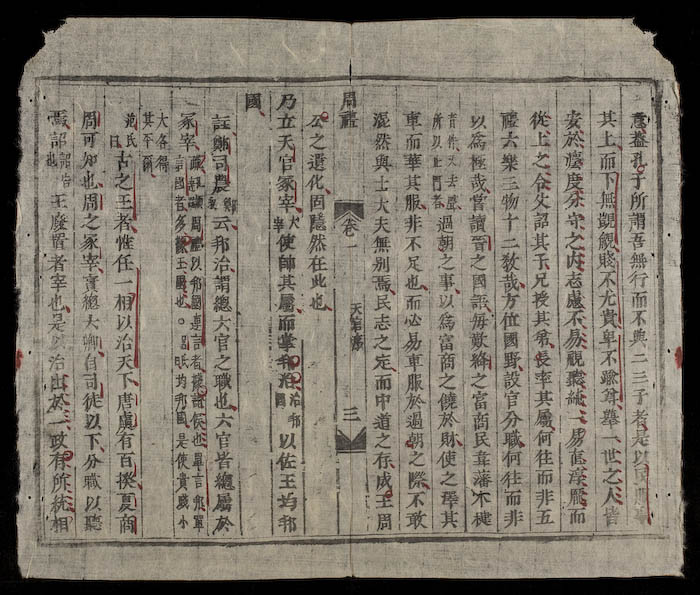 意蓋孔子所謂吾無行而不與二三子者是以民服事
其上而下無覬覦賤不尤貴卑不踰尊舉一世之人皆
安於灋度分守之內志慮不易視聽純一易直淳龎而
從上之令父詔其子兄授其弟長率其屬何往而非五
禮六樂三物十二教哉方位國野設官分職何往而非
以為極哉嘗讀晉之國語每歎絳之富商民韋藩木楗
過朝之事以為富商之饒於財使之舉其
車而華其服非不足也而必易車服於過朝之際不敢
混然與士大夫無別焉民志之定而中道之存成王周
周禮
卷一
天官序
三
公之遺化固隱然在此也
乃立天官冢宰使帥其屬而掌邦治以佐王均邦
國
註鄭司農云邦治謂總六官之職也六官皆總屬於
冢宰
大各得
其平爾
范氏曰古之王者惟任一相以治天下唐虞有百揆夏商
周可知也周之冢宰實總六卿自司徒以下分職以聽
焉詔王廢置者宰也是以治出於一政有所統相